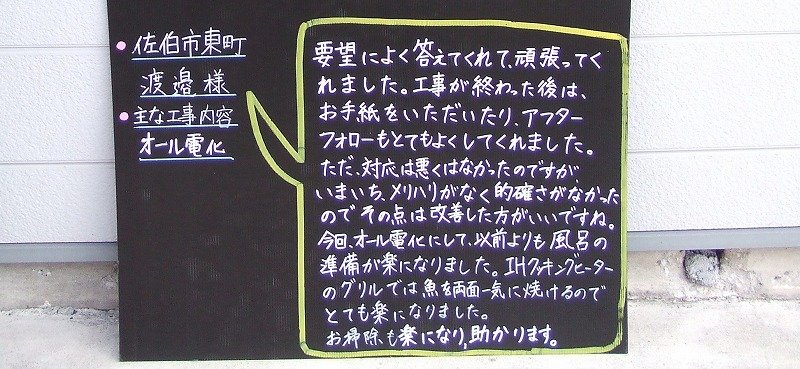 佐伯市東町
渡邉様
主な工事内容
オール電化
要望によく答えてくれて、頑張ってく
れました。工事が終わった後は、
お手紙をいただいたり、アフター
フォローもとてもよくしてくれました。
ただ、対応は悪くはなかったのですが、
いまいち、メリハリがなく的確さがなかった
のでその点は改善した方がいいですね。
今回、オール電化にして、以前よりも風呂の
準備が楽になりました。IHクッキングヒーター
のグリルでは魚を両面一気に焼けるので
とても楽になりました。
お掃除も楽になり、助かります。